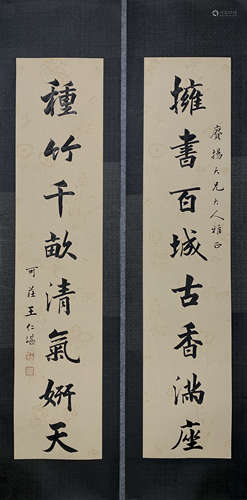 擁書百城古香滿座
賡揚兄大人雅正
種竹千畝清氣妍天
可莊王仁堪